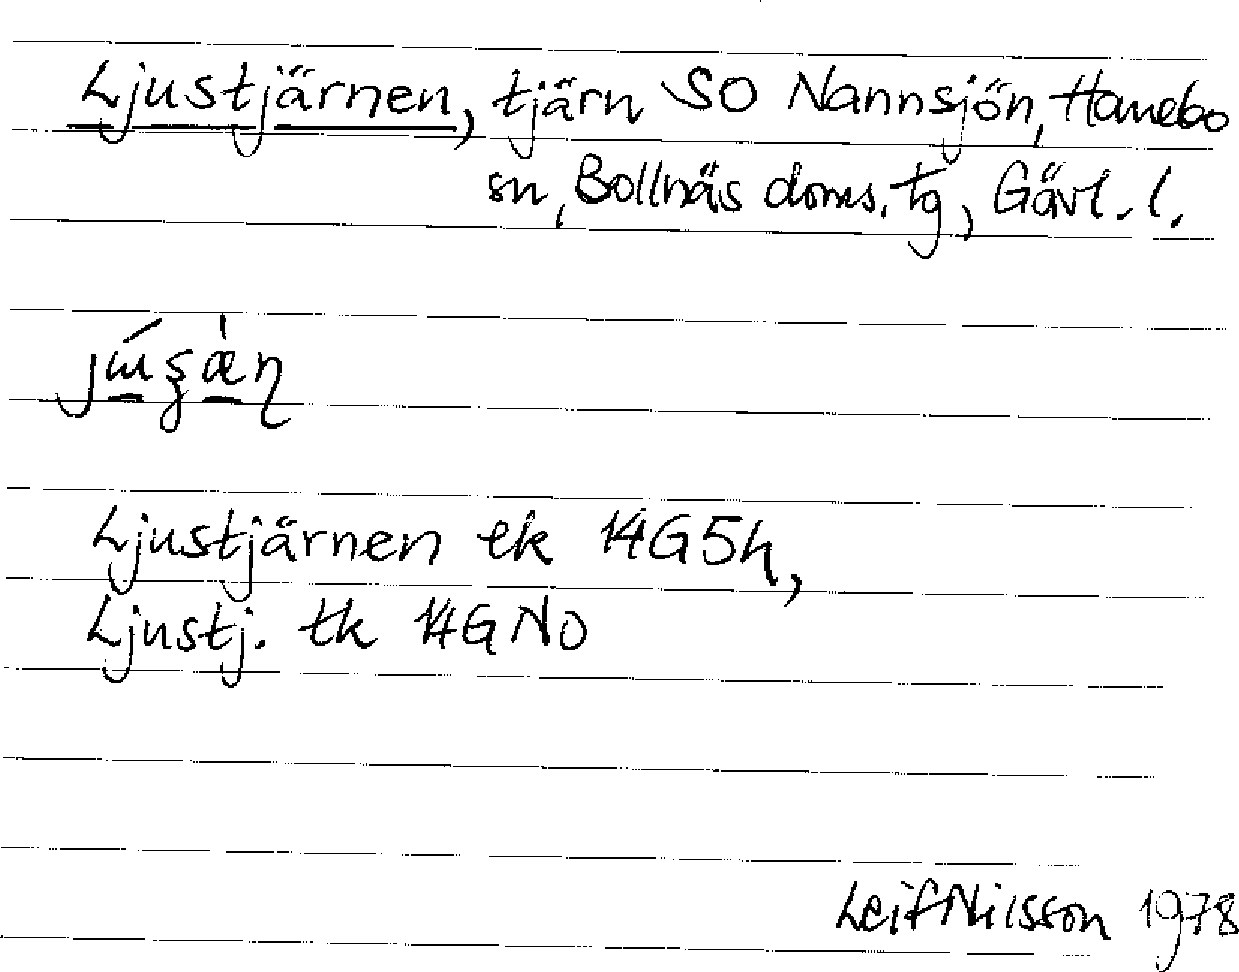 Ljustjärnen, tjärn SO Nannsjön, Hanebo
sn, Bollnäs doms. tg, Gävl. l.
Ljustjärnen ek 14G5h,
Ljustj. tk 14GNO
Leif Nilsson 1978